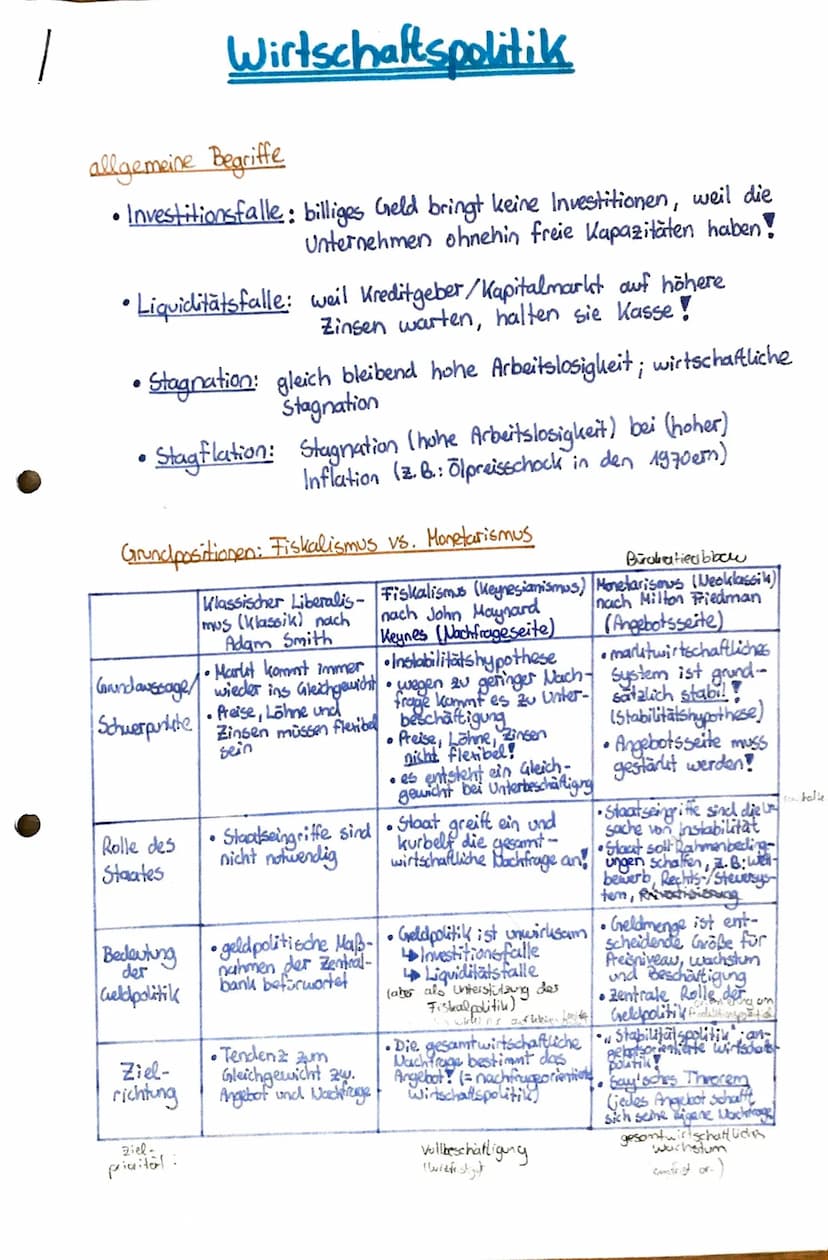 Wirtschaftspolitik
allgemeine Begriffe
• Investitionsfalle: billiges Geld bringt keine Investitionen, weil die
Unternehmen ohnehin freie Kapazitäten haben!
• Liquiditätsfalle: weil Kreditgeber/Kapitalmarkt auf höhere
Zinsen warten, halten sie Kasse!
• Stagnation: gleich bleibend hohe Arbeitslosigkeit; wirtschaftliche
Stagnation
• Stagflation: Stagnation (hohe Arbeitslosigkeit) bei (hoher)
Inflation (z.B.: Ölpreisschock in den 1970ern)
Grundpositionen: Fiskalismus vs. Monetarismus
Bürokratieabbau
Klassischer Liberalis-
mus (Klassik) nach
Adam Smith
Fiskalismus (Keynesianismus)
nach John Maynard
Keynes (Nachfrageseite)
Monetarismus (Neoklassik)
nach Milton Friedman
(Angebotsseite)
Grundaussage/
Schwerpunkte
• Markt kommt immer
wieder ins Gleichgewicht
• Preise, Löhne und
Zinsen müssen flexibel
sein
• Instabilitätshypothese
• wegen zu geringer Nach-
frage kommt es zu Unter-
beschäftigung
• Preise, Löhne, Zinsen
nicht flexibel!
• es entsteht ein Gleich-
gewicht bei Unterbeschäftigung
• marktwirtschaftliches
System ist grund-
sätzlich stabil!
(Stabilitätshypothese)
• Angebotsseite muss
gestärkt werden!
Rolle des
Staates
• Staatseingriffe sind
nicht notwendig
• Staat greift ein und
kurbelt die gesamt-
wirtschaftliche Nachfrage an!
• Staatseingriffe sind die Ur-
sache von Instabilität
• Staat soll Rahmenbeding-
ungen schaffen, z.B.: Wett-
bewerb, Rechts-/Steuersys-
tem, Privatisierung
Bedeutung
der
Geldpolitik
• geldpolitische Maß-
nahmen der Zentral-
bank befürwortet
• Geldpolitik ist unwirksam
↳ Investitionsfalle
↳ Liquiditätsfalle
(aber als Unterstützung der
Fiskalpolitik)
• Geldmenge ist ent-
scheidende Größe für
Preisniveau, Wachstum
und Beschäftigung
• zentrale Rolle der
Geldpolitik
Ziel-
richtung
• Tendenz zum
Gleichgewicht zw.
Angebot und Nachfrage
• Die gesamtwirtschaftliche
Nachfrage bestimmt das
Angebot! (= nachfrageorientierte
Wirtschaftspolitik)
• "Stabilitätspolitik": an-
gebotsorientierte Wirtschafts-
politik!
• Say'sches Theorem
(jedes Angebot schafft
sich seine eigene Nachfrage)
Ziel-
priorität:
Vollbeschäftigung
gesamtwirtschaftliches
Wachstum